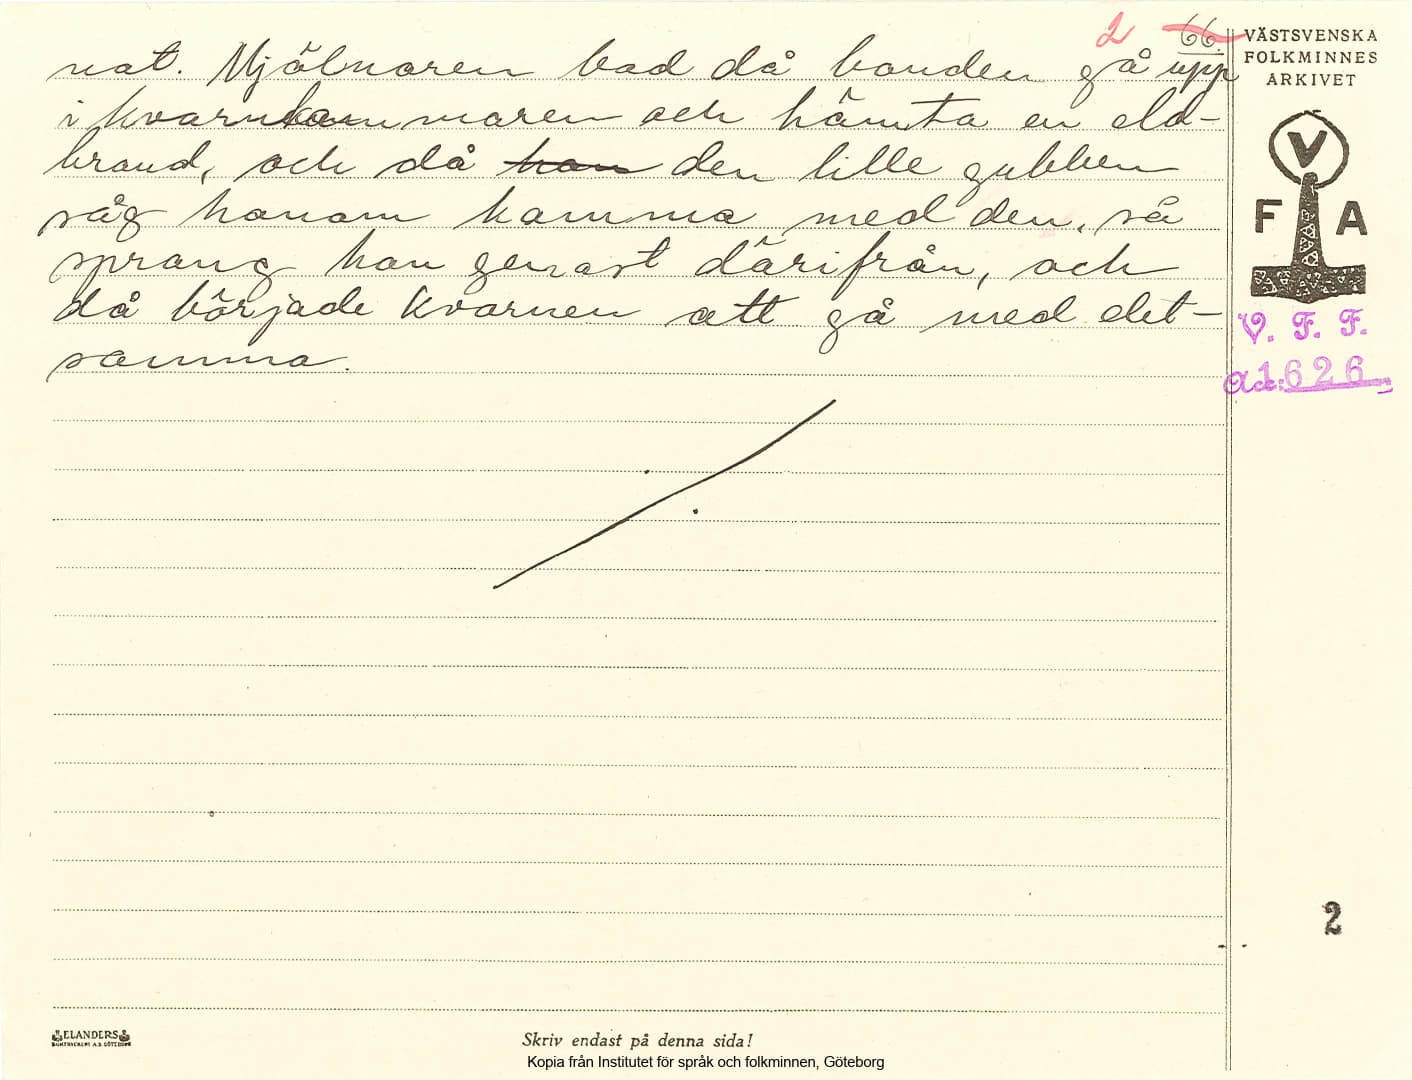 2 66.
nat. Mjölnaren bad då bonden gå upp
i kvarnkammaren och hämta en eld-
brand, och då han den lille gubben
såg honom komma med den, så
sprang han genast därifrån, och
då började kvarnen att gå med det-
samma.
VÄSTSVENSKA
FOLKMINNES
ARKIVET
V
F A
V. F. F.
Acc: 1626
2
ELANDERS
BOKTRYCKERI A.B. GÖTEBORG
Skriv endast på denna sida!
Kopia från Institutet för språk och folkminnen, Göteborg